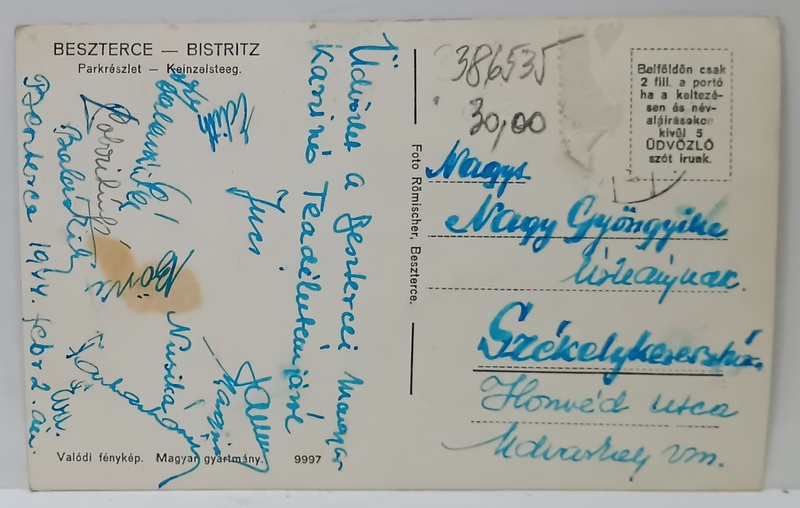 BESZTERCE — BISTRITZ
Parkrészlet — Keinzelsteeg.
Üdvözlet a Besztercei Magyar
Kaszinó Teadélutánjáról
Juci
Beszterce 1944. febr 2. án.
Valódi fénykép. Magyar gyártmány. 9997
Foto Römischer, Beszterce.
386535
30,00
Belföldön csak
2 fill. a portó
ha a keltezé-
sen és név-
aláirásokon
kivül 5
ÜDVÖZLŐ
szót irunk.
Nagys.
Nagy Gyöngyike
Úrleánynak.
Székelykeresztúr.
Honvéd utca
Udvarhely vm.